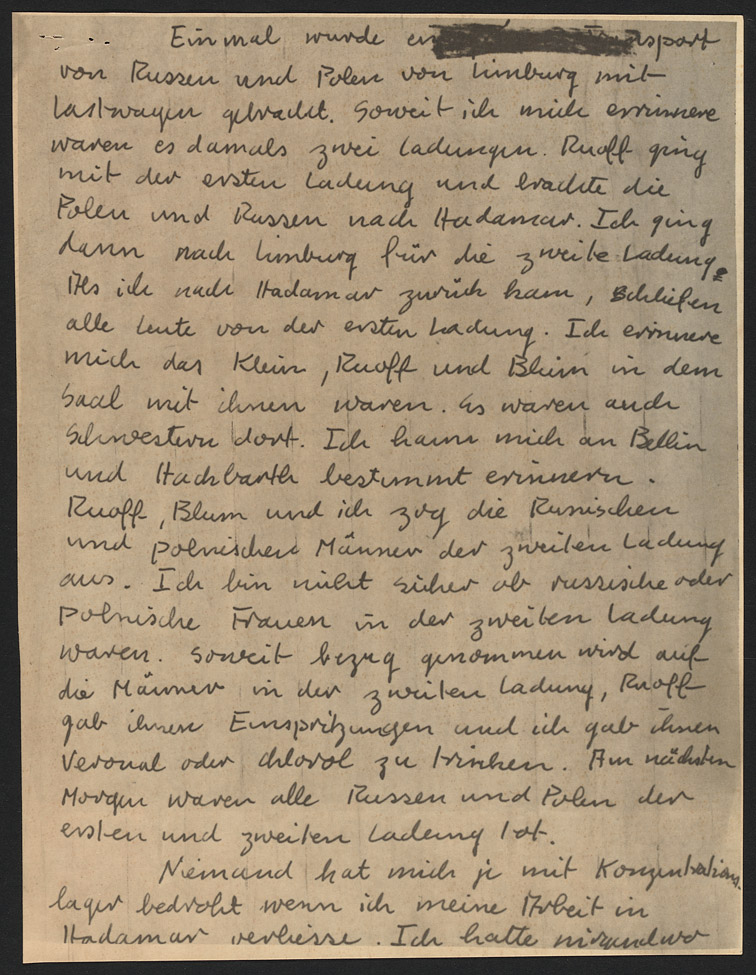 Einmal wurde ein Transport
von Russen und Polen von Limburg mit
Lastwagen gebracht. Soweit ich mich errinnere
waren es damals zwei Ladungen. Ruoff ging
mit der ersten Ladung und brachte die
Polen und Russen nach Hadamar. Ich ging
dann nach Limburg für die zweite Ladung.
Als ich nach Hadamar zurück kam, schliefen
alle Leute von der ersten Ladung. Ich erinnere
mich das Klein, Ruoff und Blum in dem
Saal mit ihnen waren. Es waren auch
Schwestern dort. Ich kann mich an Bellin
und Hackbarth bestimmt erinnern.
Ruoff, Blum und ich zog die Russischen
und polnischen Männer der zweiten Ladung
aus. Ich bin nicht sicher ob russische oder
polnische Frauen in der zweiten Ladung
waren. Soweit bezug genommen wird auf
die Männer in der zweiten Ladung, Ruoff
gab ihnen Einspritzungen und ich gab ihnen
Veronal oder chlorol zu trinken. Am nächsten
Morgen waren alle Russen und Polen der
ersten und zweiten Ladung tot.
Niemand hat mich je mit Konzentrations-
lager bedroht wenn ich meine Arbeit in
Hadamar verliesse. Ich hatte nirgendwo